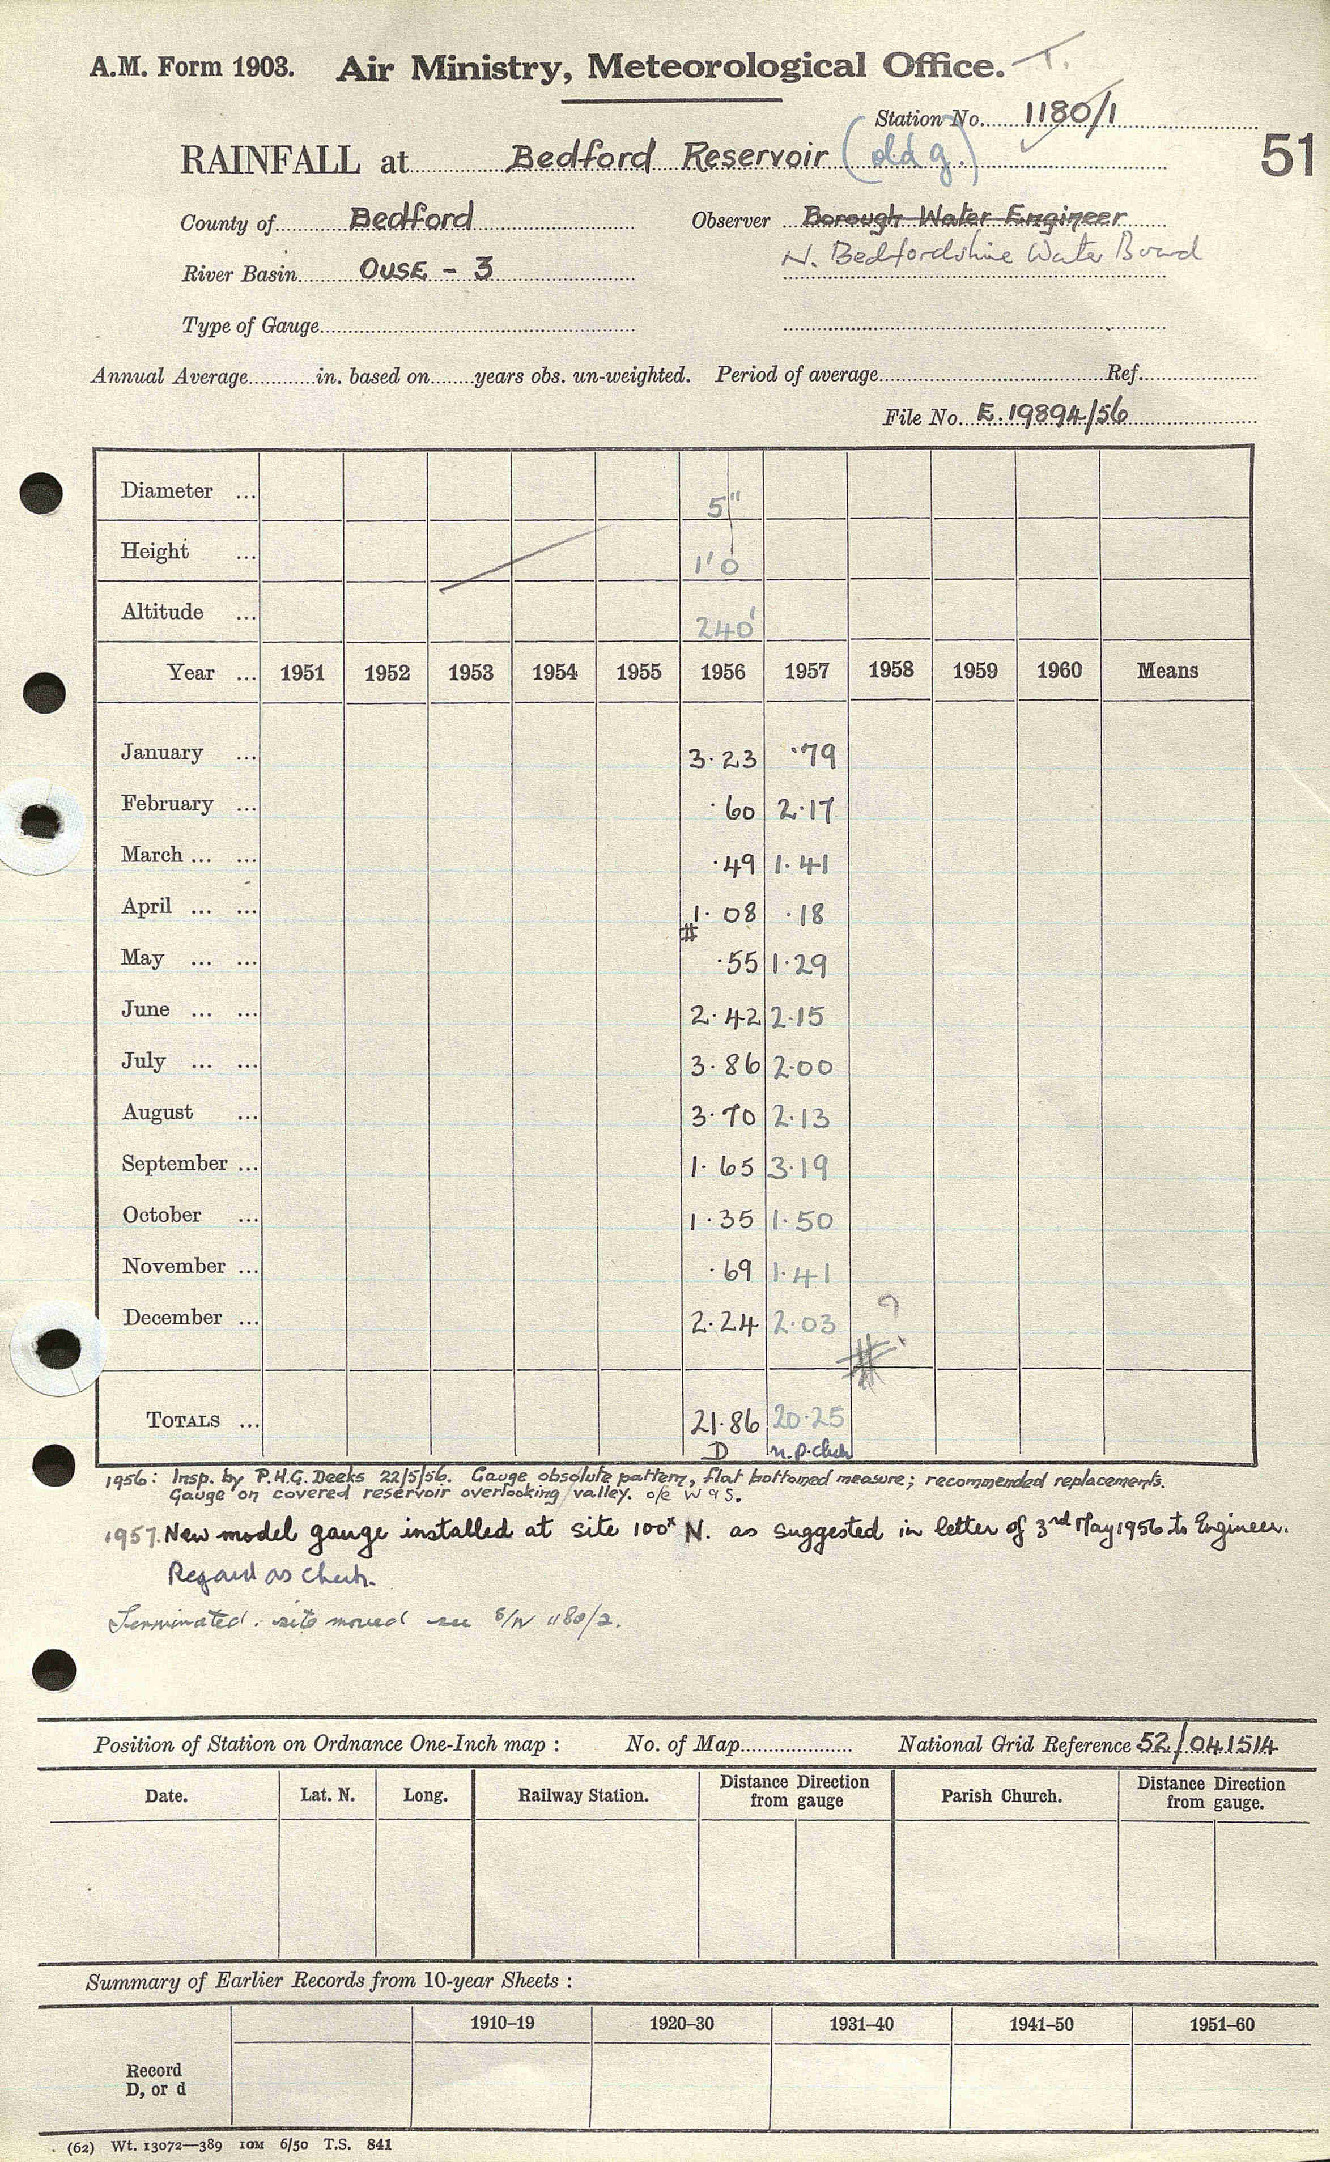 A.M. Form 1903. Air Ministry, Meteorological Office. T.
Station No. 1180/1
RAINFALL at Bedford Reservoir (old g.) 51
County of Bedford Observer Borough Water Engineer
N. Bedfordshire Water Board
River Basin OUSE - 3
Type of Gauge
Annual Average in. based on years obs. un-weighted. Period of average Ref.
File No. E.19894/56
Diameter ... 5"
Height ... 1'0
Altitude ... 240'
Year ... 1951 1952 1953 1954 1955 1956 1957 1958 1959 1960 Means
January ... 3.23 .79
February ... .60 2.17
March ... ... .49 1.41
April ... ... 1.08 .18
#
May ... ... .55 1.29
June ... ... 2.42 2.15
July ... ... 3.86 2.00
August ... 3.70 2.13
September ... 1.65 3.19
October ... 1.35 1.50
November ... .69 1.41
December ... 2.24 2.03
#
TOTALS ... 21.86 20.25
D n.p. check
1956: Insp. by P.H.G. Deeks 22/5/56. Gauge absolute pattern, flat bottomed measure; recommended replacements.
Gauge on covered reservoir overlooking valley. o/e W 9 S.
1957. New model gauge installed at site 100x N. as suggested in letter of 3rd May 1956 to Engineer.
Regard as Check.
Terminated. site moved see S/N 1180/2.
Position of Station on Ordnance One-Inch map : No. of Map National Grid Reference 52/041514
Date. Lat. N. Long. Railway Station. Distance Direction from gauge Parish Church. Distance Direction from gauge.
Summary of Earlier Records from 10-year Sheets :
1910–19 1920–30 1931–40 1941–50 1951–60
Record
D, or d
(62) Wt. 13072—389 10M 6/50 T.S. 841